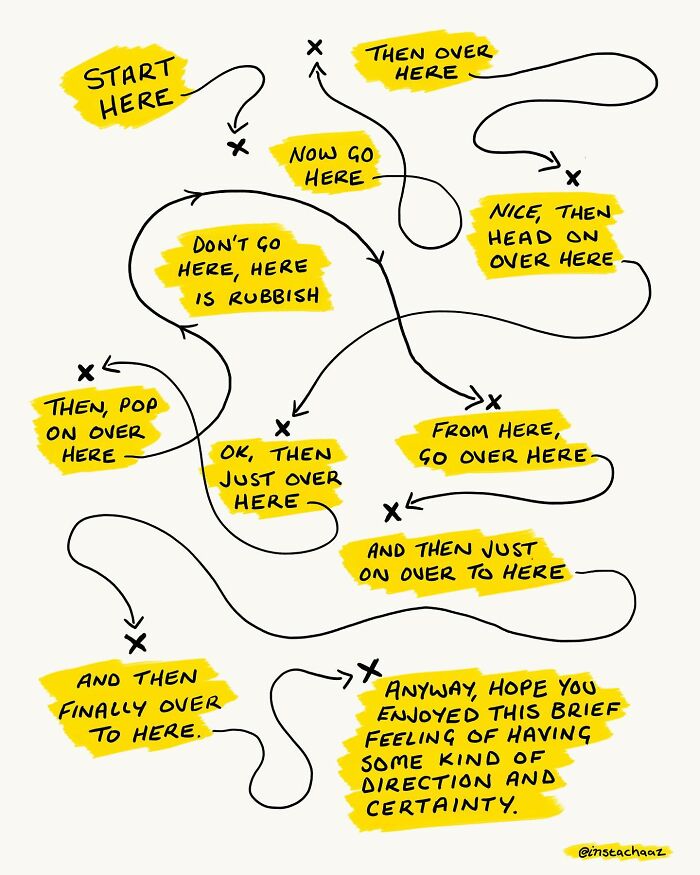 START
HERE
NOW GO
HERE
THEN OVER
HERE
NICE, THEN
HEAD ON
OVER HERE
OK, THEN
JUST OVER
HERE
THEN, POP
ON OVER
HERE
DON'T GO
HERE, HERE
IS RUBBISH
FROM HERE,
GO OVER HERE
AND THEN JUST
ON OVER TO HERE
AND THEN
FINALLY OVER
TO HERE.
ANYWAY, HOPE YOU
ENJOYED THIS BRIEF
FEELING OF HAVING
SOME KIND OF
DIRECTION AND
CERTAINTY.
@instachaaz